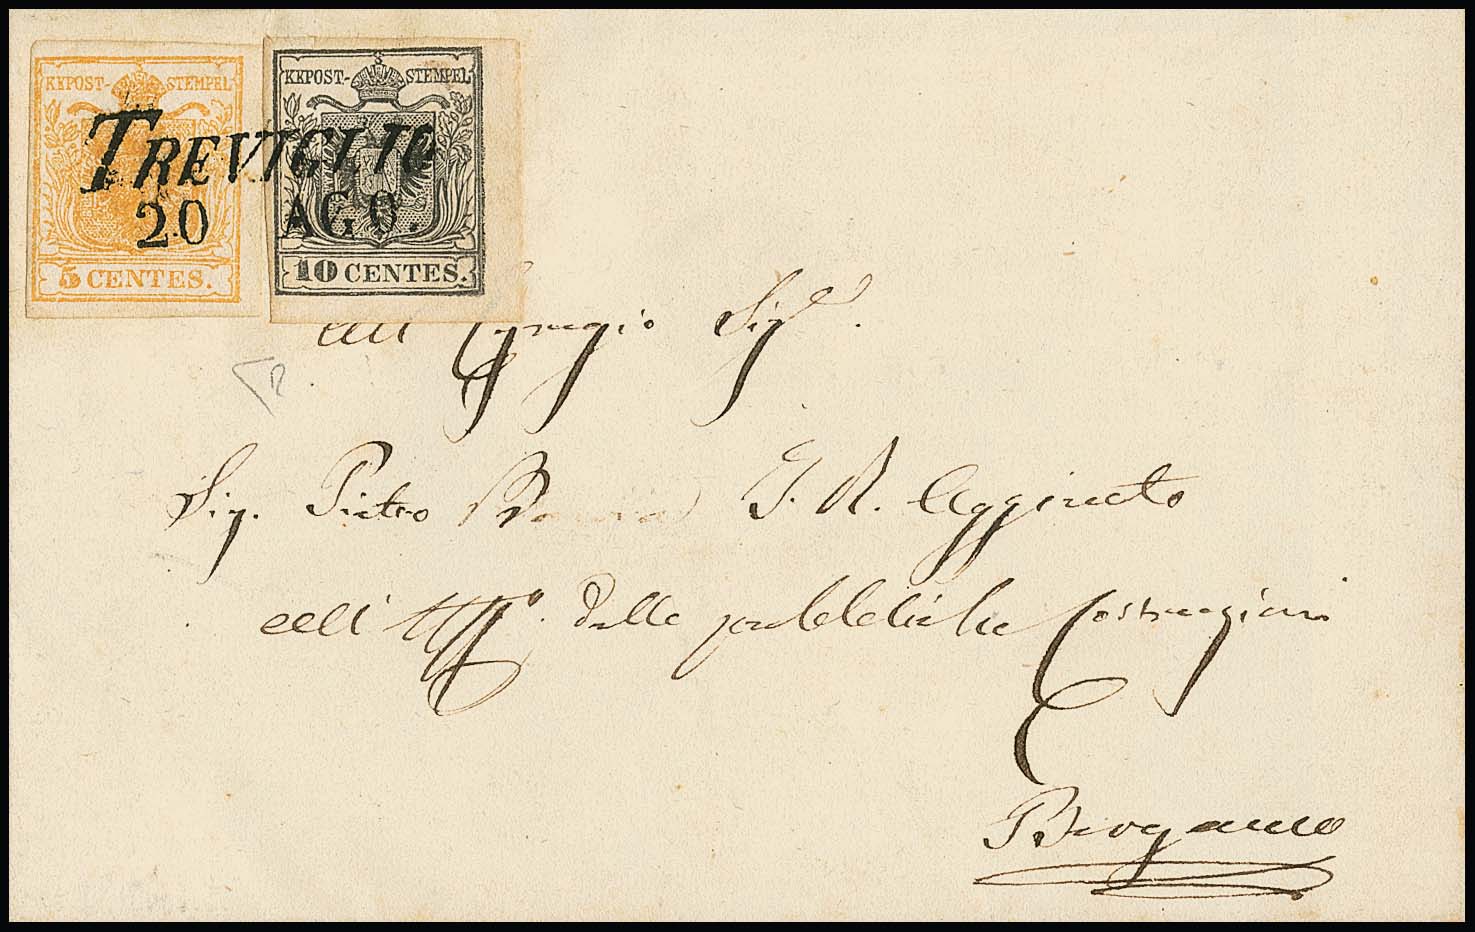 KKPOST- STEMPEL
KKPOST- STEMPEL
TREVIGLIO
20 AGO.
5 CENTES.
10 CENTES.
All' Egregio Sigr.
Sig. Pietro I. R. Aggiunto
all' Uffo. delle pubbliche Costruzioni
Bergamo